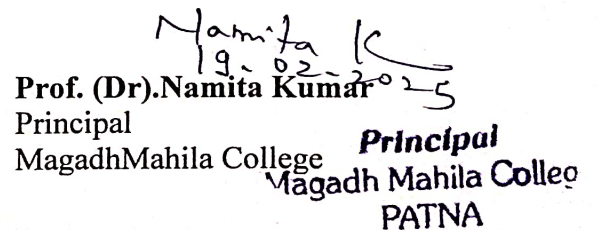 Namita K
19.02.2025
Prof. (Dr).Namita Kumar
Principal
MagadhMahila College
Principal
Magadh Mahila Colleg
PATNA